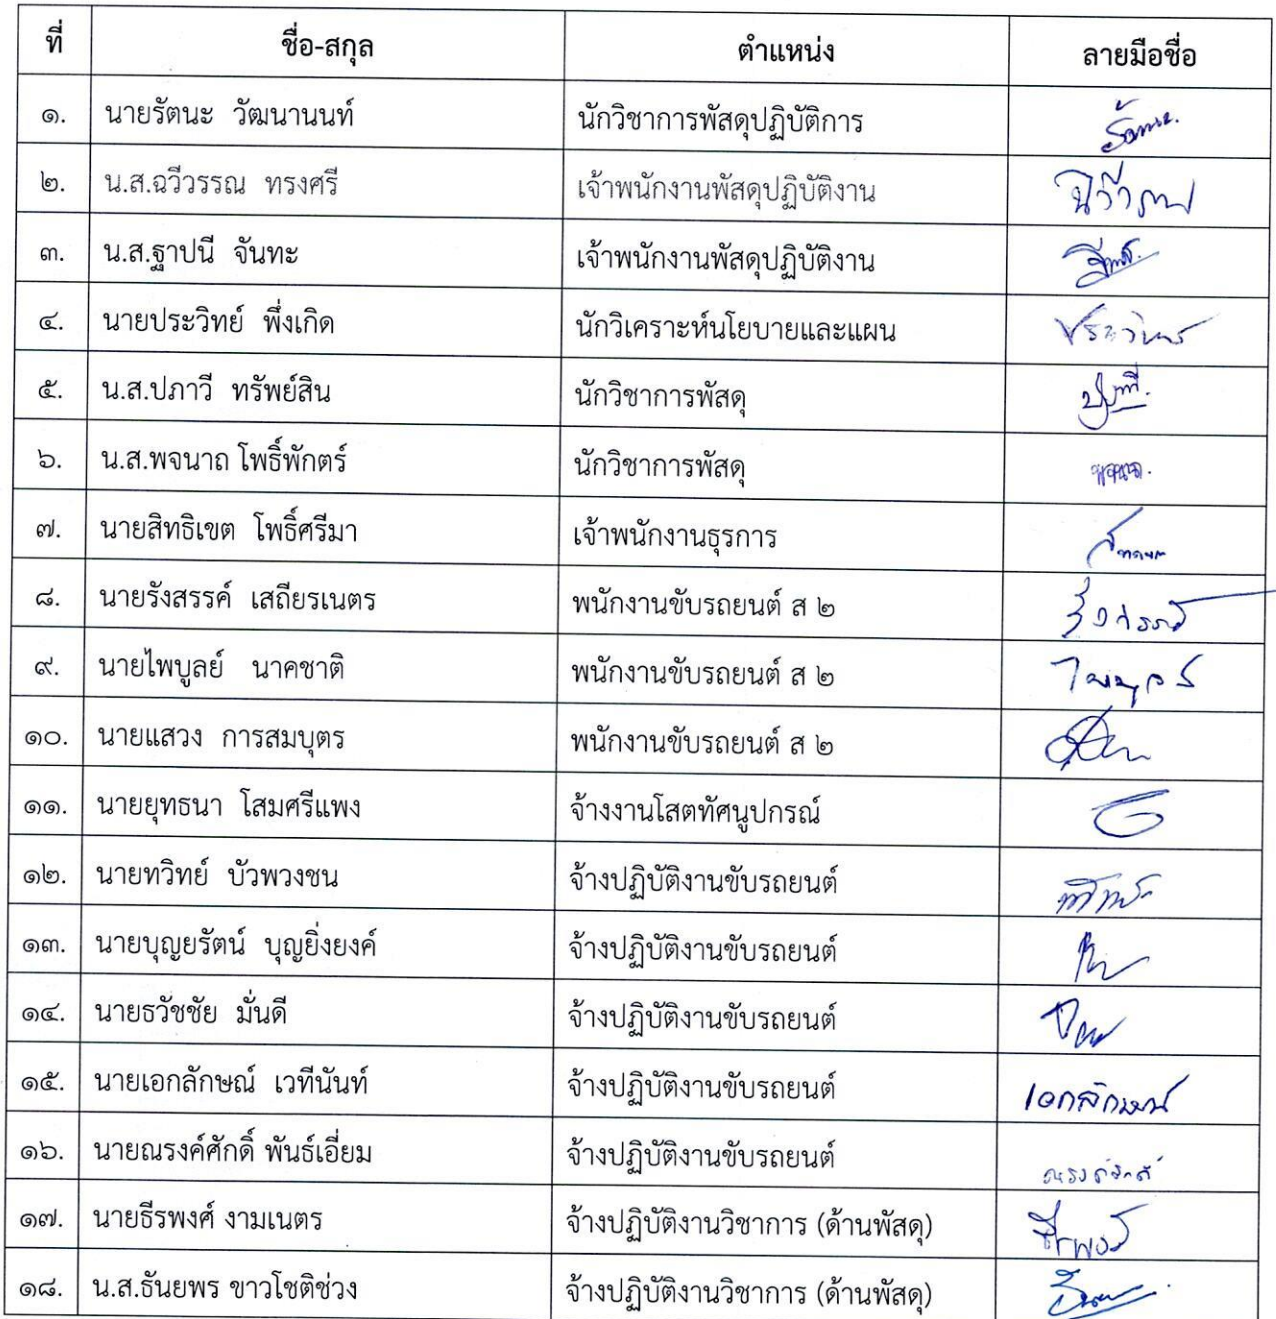 ที่ ชื่อ-สกุล ตำแหน่ง ลายมือชื่อ
๑. นายรัตนะ วัฒนานนท์ นักวิชาการพัสดุปฏิบัติการ
๒. น.ส.ฉวีวรรณ ทรงศรี เจ้าพนักงานพัสดุปฏิบัติงาน
๓. น.ส.ฐาปนี จันทะ เจ้าพนักงานพัสดุปฏิบัติงาน
๔. นายประวิทย์ พึ่งเกิด นักวิเคราะห์นโยบายและแผน
๕. น.ส.ปภาวี ทรัพย์สิน นักวิชาการพัสดุ
๖. น.ส.พจนาถ โพธิ์พักตร์ นักวิชาการพัสดุ พจนาถ.
๗. นายสิทธิเขต โพธิ์ศรีมา เจ้าพนักงานธุรการ
๘. นายรังสรรค์ เสถียรเนตร พนักงานขับรถยนต์ ส ๒ รังสรรค์
๙. นายไพบูลย์ นาคชาติ พนักงานขับรถยนต์ ส ๒ ไพบูลย์
๑๐. นายแสวง การสมบุตร พนักงานขับรถยนต์ ส ๒
๑๑. นายยุทธนา โสมศรีแพง จ้างงานโสตทัศนูปกรณ์
๑๒. นายทวิทย์ บัวพวงชน จ้างปฏิบัติงานขับรถยนต์
๑๓. นายบุญยรัตน์ บุญยิ่งยงค์ จ้างปฏิบัติงานขับรถยนต์
๑๔. นายธวัชชัย มั่นดี จ้างปฏิบัติงานขับรถยนต์
๑๕. นายเอกลักษณ์ เวทีนันท์ จ้างปฏิบัติงานขับรถยนต์ เอกลักษณ์
๑๖. นายณรงค์ศักดิ์ พันธ์เอี่ยม จ้างปฏิบัติงานขับรถยนต์ ณรงค์ศักดิ์
๑๗. นายธีรพงศ์ งามเนตร จ้างปฏิบัติงานวิชาการ (ด้านพัสดุ)
๑๘. น.ส.ธันยพร ขาวโชติช่วง จ้างปฏิบัติงานวิชาการ (ด้านพัสดุ)